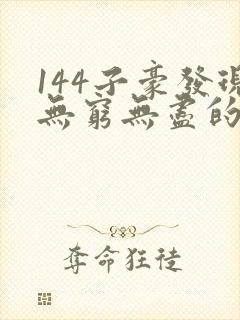 144子豪發現
無窮無盡的
奪命狂徒